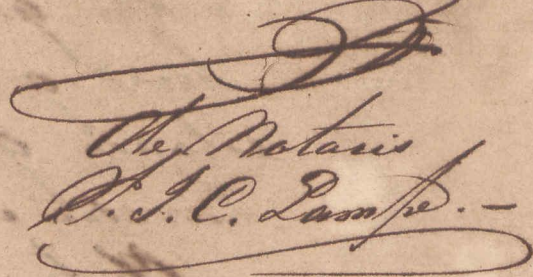 De Notaris
P. J. C. Lampe. -